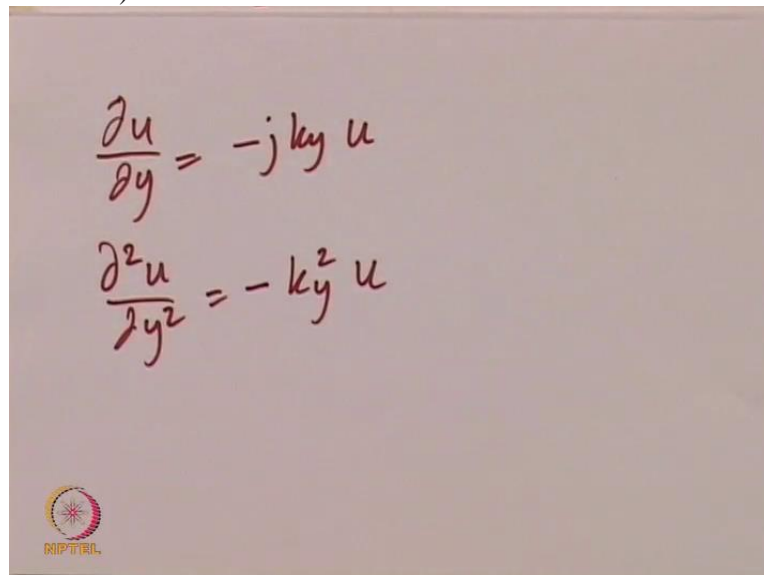 )
∂u/∂y = -j ky u
∂²u/∂y² = - ky² u
NPTEL